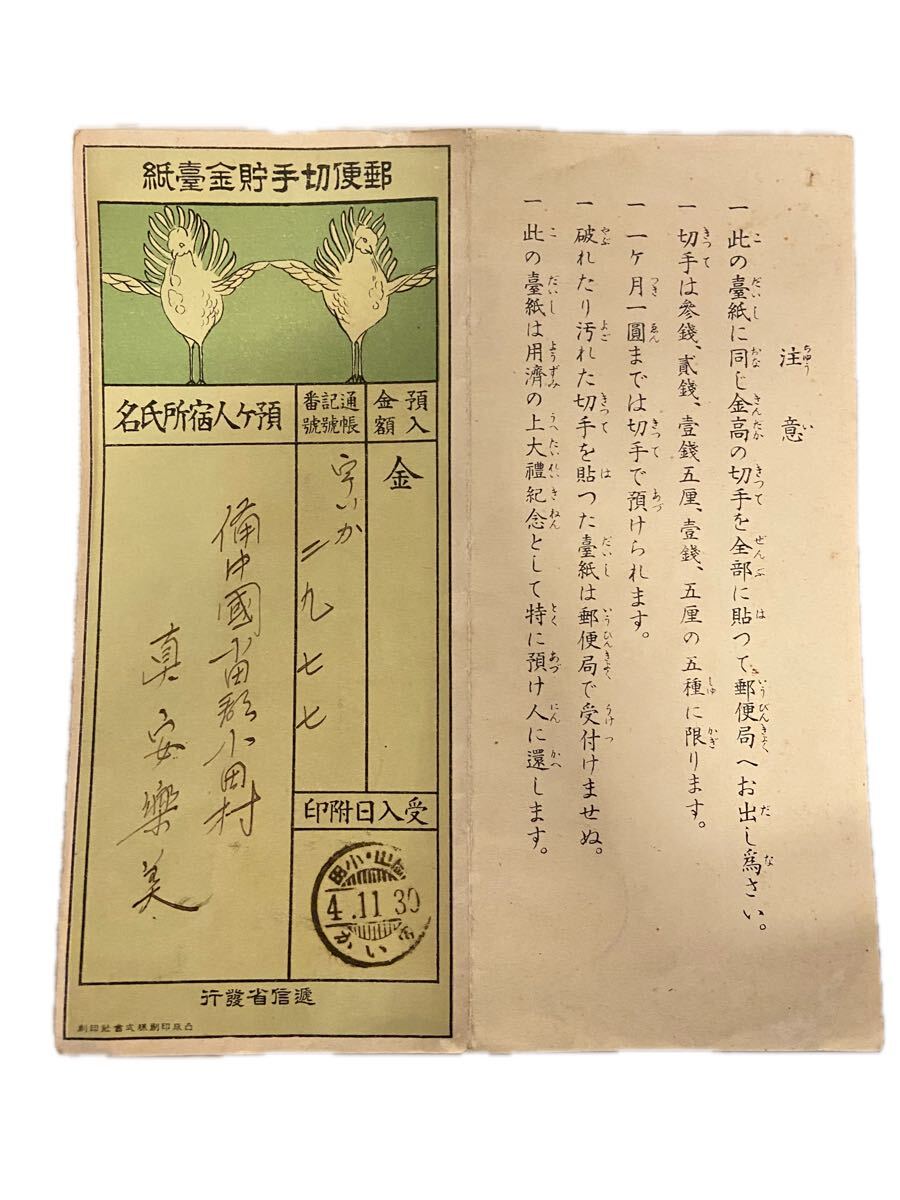 注意
一 此の臺紙に同じ金高の切手を全部に貼つて郵便局へお出し爲さい。
一 切手は參錢、貳錢、壹錢五厘、壹錢、五厘の五種に限ります。
一 一ヶ月一圓までは切手で預けられます。
一 破れたり汚れた切手を貼つた臺紙は郵便局で受付けませぬ。
一 此の臺紙は用濟の上大禮紀念として特に預け人に還します。
紙臺金貯手切便郵
預入金額
金
通帳記號番號
字いか 二九七七
名氏所宿人ケ預
備中國小田郡小田村
真安樂美
印附日入受
岡山・小田
4.11.30
行發省信遞
刷印社會式株刷印版凸